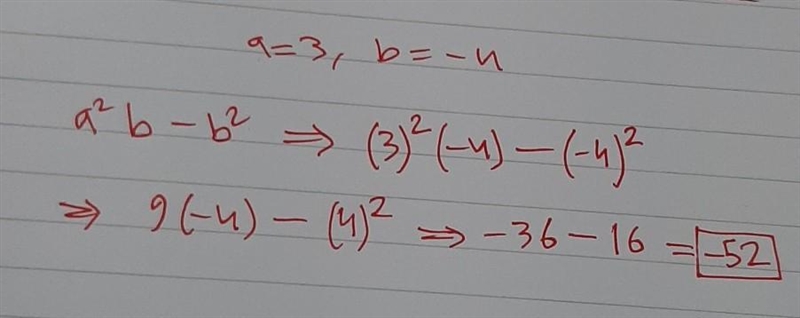 a=3, b=-4
a² b - b² ⇒ (3)² (-4) - (-4)²
⇒ 9(-4) - (4)² ⇒ -36 - 16 = -52